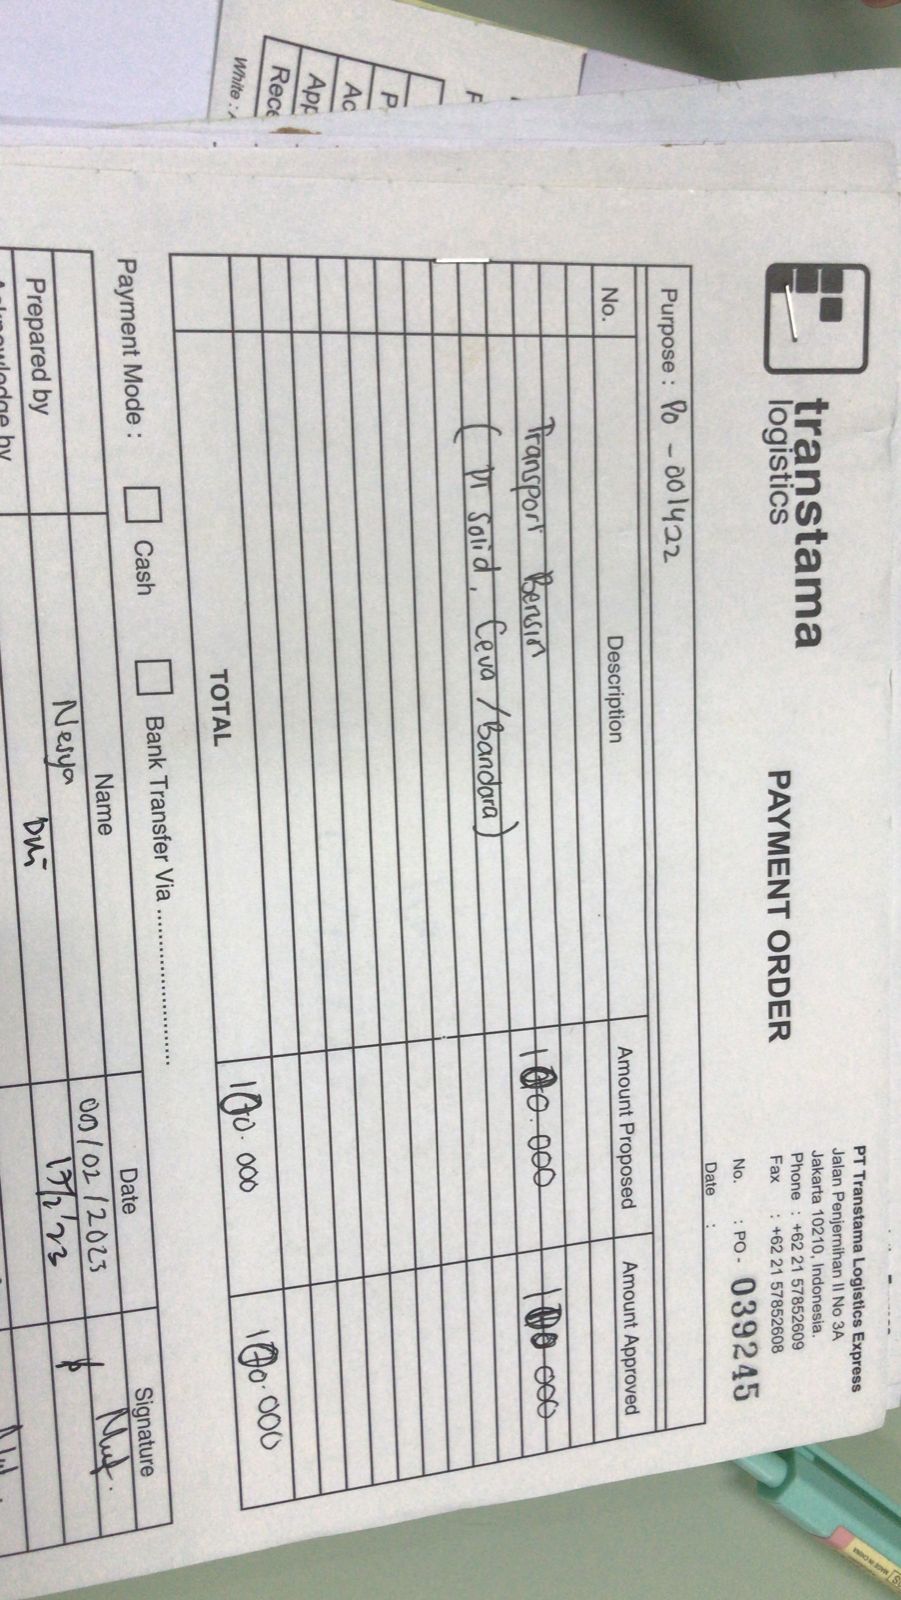 transtama
logistics
PAYMENT ORDER
PT Transtama Logistics Express
Jalan Penjernihan II No 3A
Jakarta 10210, Indonesia.
Phone : +62 21 57852609
Fax : +62 21 57852608
No. : PO - 039245
Date :
Purpose : PO - 001422
No. Description Amount Proposed Amount Approved
Transport Bensin 100.000 100.000
( DI Solid, Ceva / Bandara )
TOTAL 100.000 100.000
Payment Mode : Cash Bank Transfer Via ........................
Name Date Signature
Prepared by Nesya 09/02/2023
Acknowledge by Dwi 13/2/23
White :
Rece
App
Ac
P
F
MADE IN CHINA